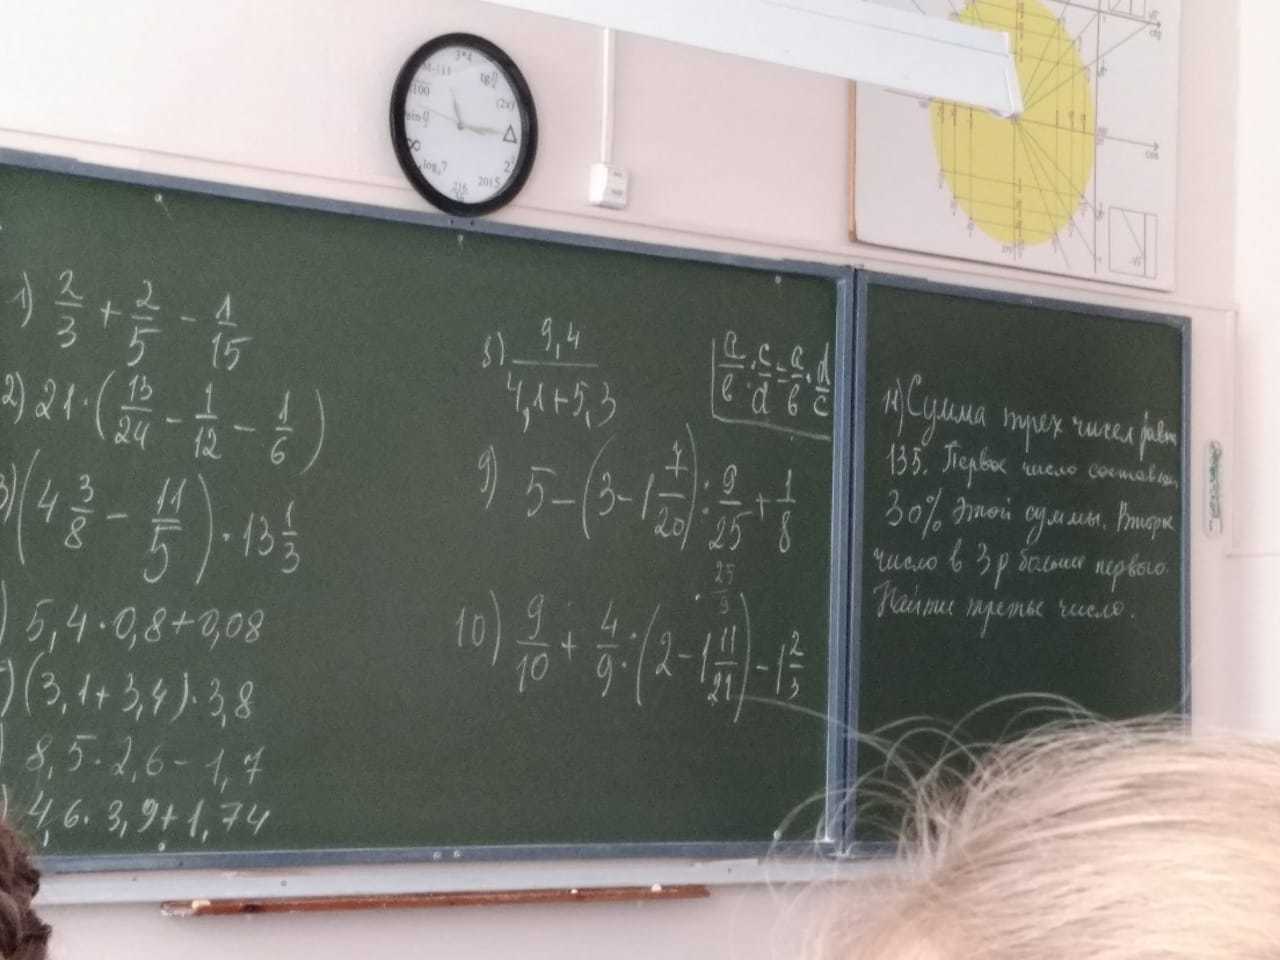 3*4
tg
(2x)
Δ
2²
2015
216
log 7
∞
sin
100
1) 2/3 + 2/5 - 1/15
2) 21·(13/24 - 1/12 - 1/6)
3) (4 3/8 - 11/5)·13 1/3
) 5,4·0,8+0,08
) (3,1+3,4)·3,8
) 8,5·2,6-1,7
) 4,6·3,9+1,74
8) 9,4/(4,1+5,3)
a/b : c/d = a/b · d/c
9) 5-(3-1 7/20) : 9/25 + 1/8
· 25/9
10) 9/10 + 4/9 : (2-1 11/21) - 1 2/3
11) Сумма трех чисел равн
135. Первое число составл
30% этой суммы. Второе
число в 3 р больше первого.
Найти третье число.
cos